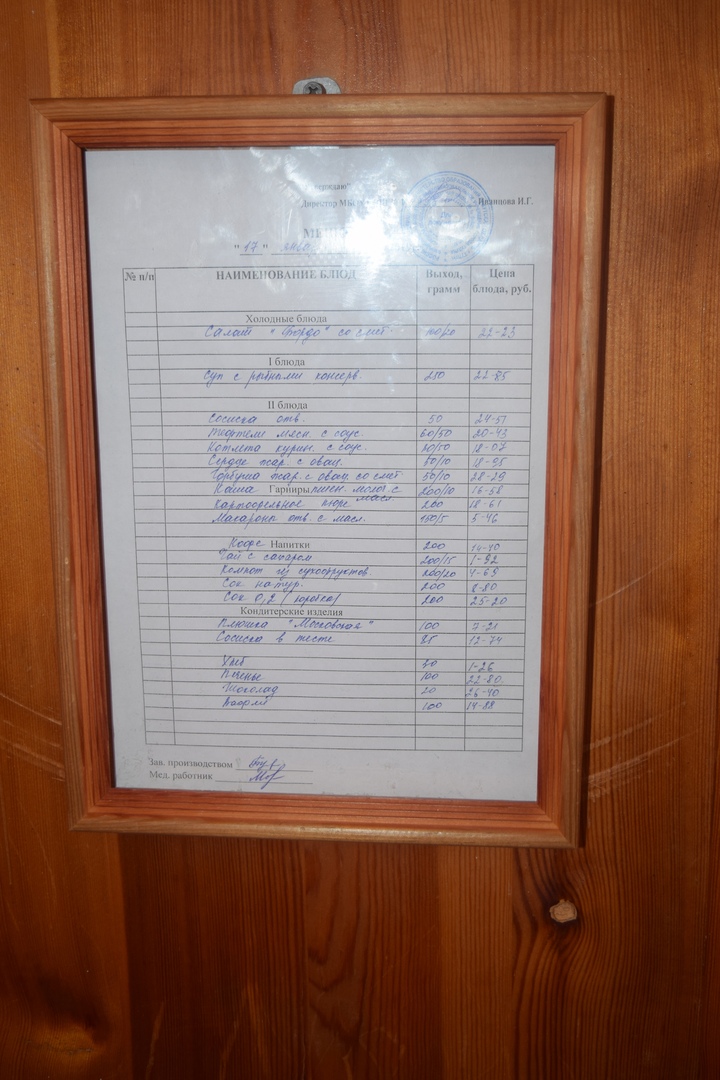 Утверждаю"
Директор Иванова И.Г.
МЕНЮ
"17"
№ п/п НАИМЕНОВАНИЕ БЛЮД Выход, грамм Цена блюда, руб.
Холодные блюда
Салат "Бордо" со смет. 100/20 22-23
I блюда
Суп с рыбными консерв. 250 22-85
II блюда
Сосиска отв. 50 24-51
Тефтели мясн. с соус. 60/50 20-43
Котлета курин. с соус. 50/50 18-07
Сердце жар. с овощ. 50/10 18-95
Горбуша жар. с овощ. со смет. 50/10 28-29
Гарниры
Каша пшен. молоч. с масл. 200/10 16-58
Картофельное пюре 200 18-61
Макароны отв. с масл. 150/5 5-46
Напитки
Кофе 200 14-70
Чай с сахаром 200/15 1-92
Компот из сухофруктов. 200/20 4-69
Сок натур. 200 8-80
Сок 0,2 (коробка) 200 25-20
Кондитерские изделия
Плюшка "Московская" 100 7-21
Сосиска в тесте 85 12-74
Хлеб 30 1-26
Печенье 100 22-80
Шоколад 20 26-40
Вафли 100 14-88
Зав. производством
Мед. работник